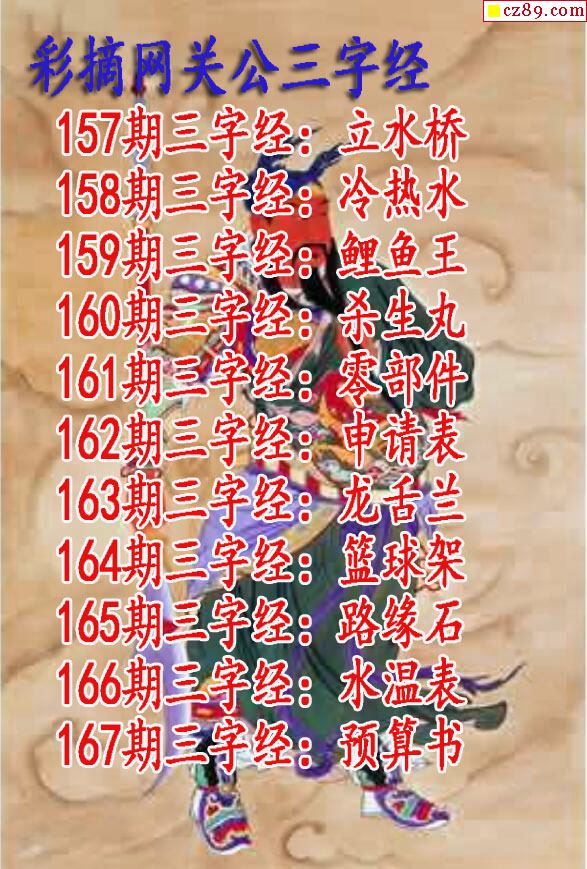 cz89.com
彩摘网关公三字经
157期三字经：立水桥
158期三字经：冷热水
159期三字经：鲤鱼王
160期三字经：杀生丸
161期三字经：零部件
162期三字经：申请表
163期三字经：龙舌兰
164期三字经：篮球架
165期三字经：路缘石
166期三字经：水温表
167期三字经：预算书